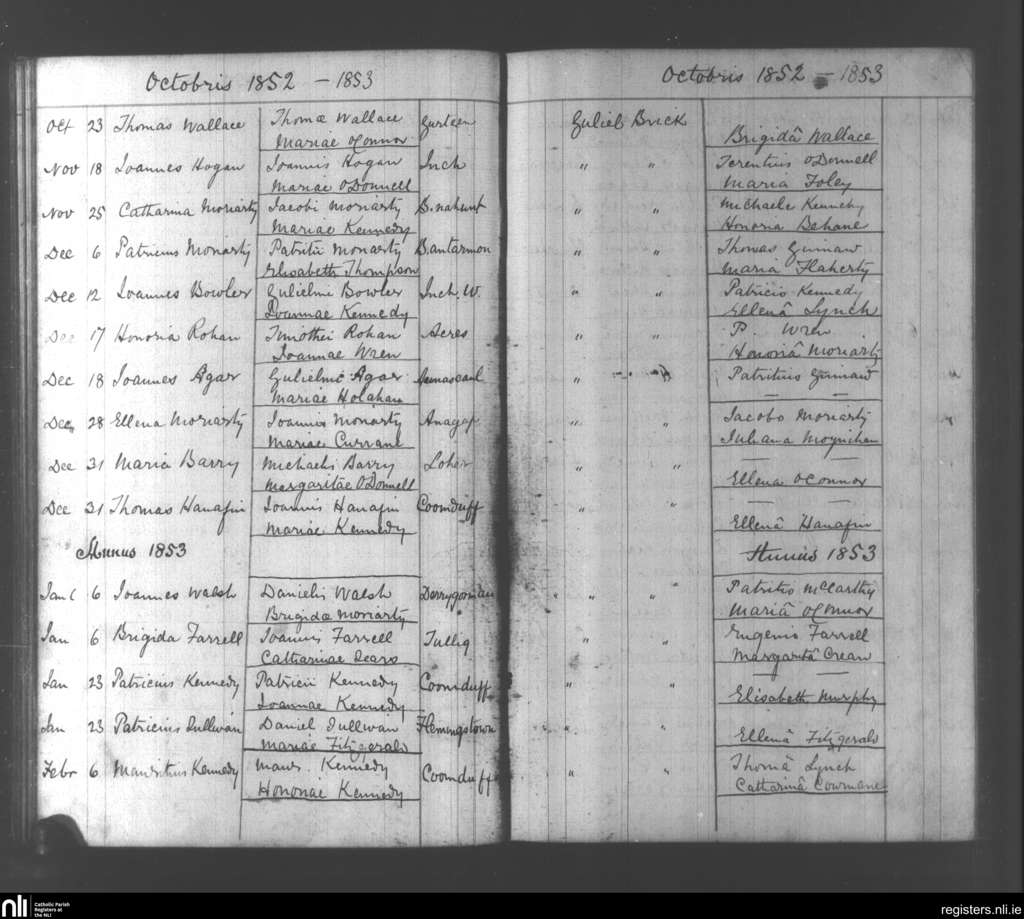 Octobris 1852 - 1853
Oct 23 Thomas Wallace Thomæ Wallace Gurteen
Mariae O'Connor
Nov 18 Ioannes Hogan Ioannis Hogan Inch
Mariae O'Donnell
Nov 25 Catharina Moriarty Iacobi Moriarty B.nahunt
Mariae Kennedy
Dec 6 Patricius Moriarty Patritii Moriarty B.antarmon
Elisabeth Thompson
Dec 12 Ioannes Bowler Gulielmi Bowler Inch. W.
Ioannae Kennedy
Dec 17 Honoria Rohan Timothei Rohan Acres
Ioannae Wren
Dec 18 Ioannes Agar Gulielmi Agar Annascaul
Mariae Holahan
Dec 28 Ellena Moriarty Ioannis Moriarty Anagap
Mariae Currane
Dec 31 Maria Barry Michaelis Barry Loher
Margaritae O'Donnell
Dec 31 Thomas Hanafin Ioannis Hanafin Coomduff
Mariae Kennedy
Annus 1853
Jan 6 Ioannes Walsh Danielis Walsh
Brigidæ Moriarty
Jan 6 Brigida Farrell Ioannis Farrell Tulliq
Catharinae Sears
Jan 23 Patricius Kennedy Patricii Kennedy Coomduff
Ioannae Kennedy
Jan 23 Patricius Sullivan Daniel Sullivan Flemingstown
Mariae Fitzgerald
Febr 6 Mauritius Kennedy Maur. Kennedy Coomduff
Honoriae Kennedy
Octobris 1852 - 1853
Guliel Brick
Brigidâ Wallace
" " Terentius O'Donnell
Maria Foley
" " Michaele Kennedy
Honoria Behane
" " Thomas Guinaw
Maria Flaherty
" " Patricio Kennedy
Ellenâ Lynch
" " P. Wren
Honoriâ Moriarty
" " Patritius Guinaw
— —
" " Iacobo Moriarty
Iuliana Moynihan
" " — —
Ellena O'Connor
" " — —
Ellenâ Hanafin
Annus 1853
" " " Patritio McCarthy
Mariâ O'Connor
" " Eugenio Farrell
Margaritâ Crean
" " — —
Elisabeth Murphy
" "
Ellenâ Fitzgerald
" " Thomâ Lynch
Catharinâ Cowmane
nli Catholic Parish
Registers at
the NLI
registers.nli.ie